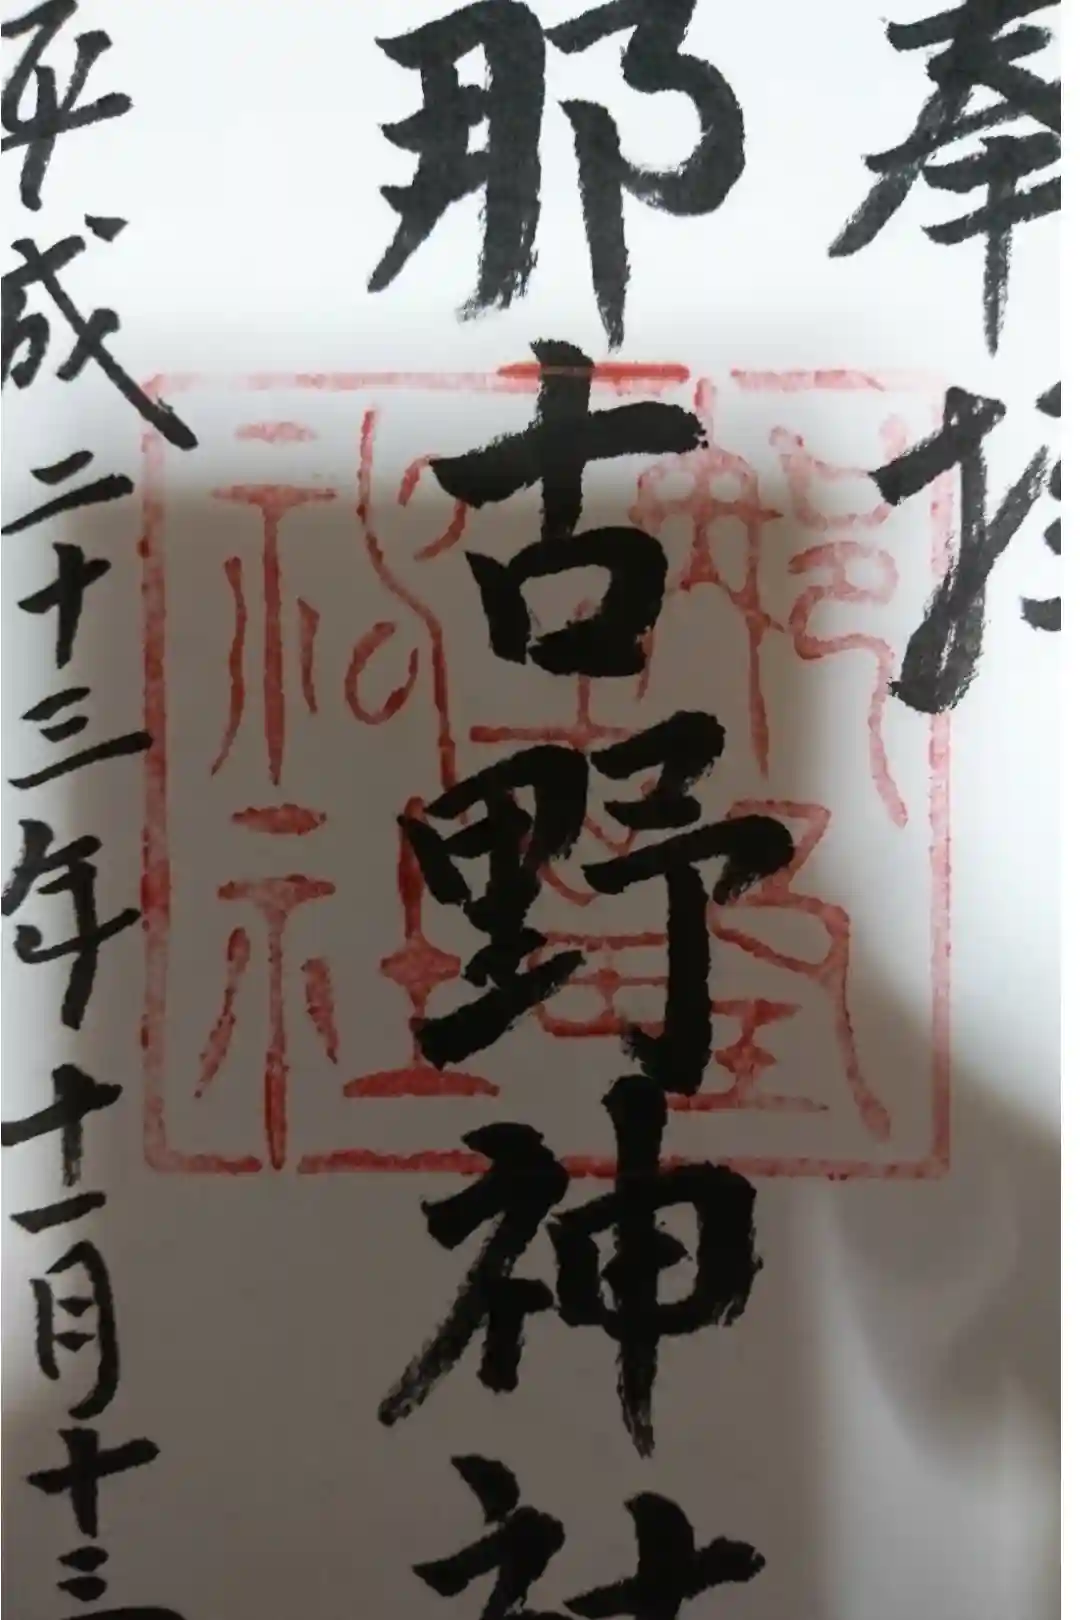 奉拝
那古野神社
平成二十三年十一月十三
那古野神社